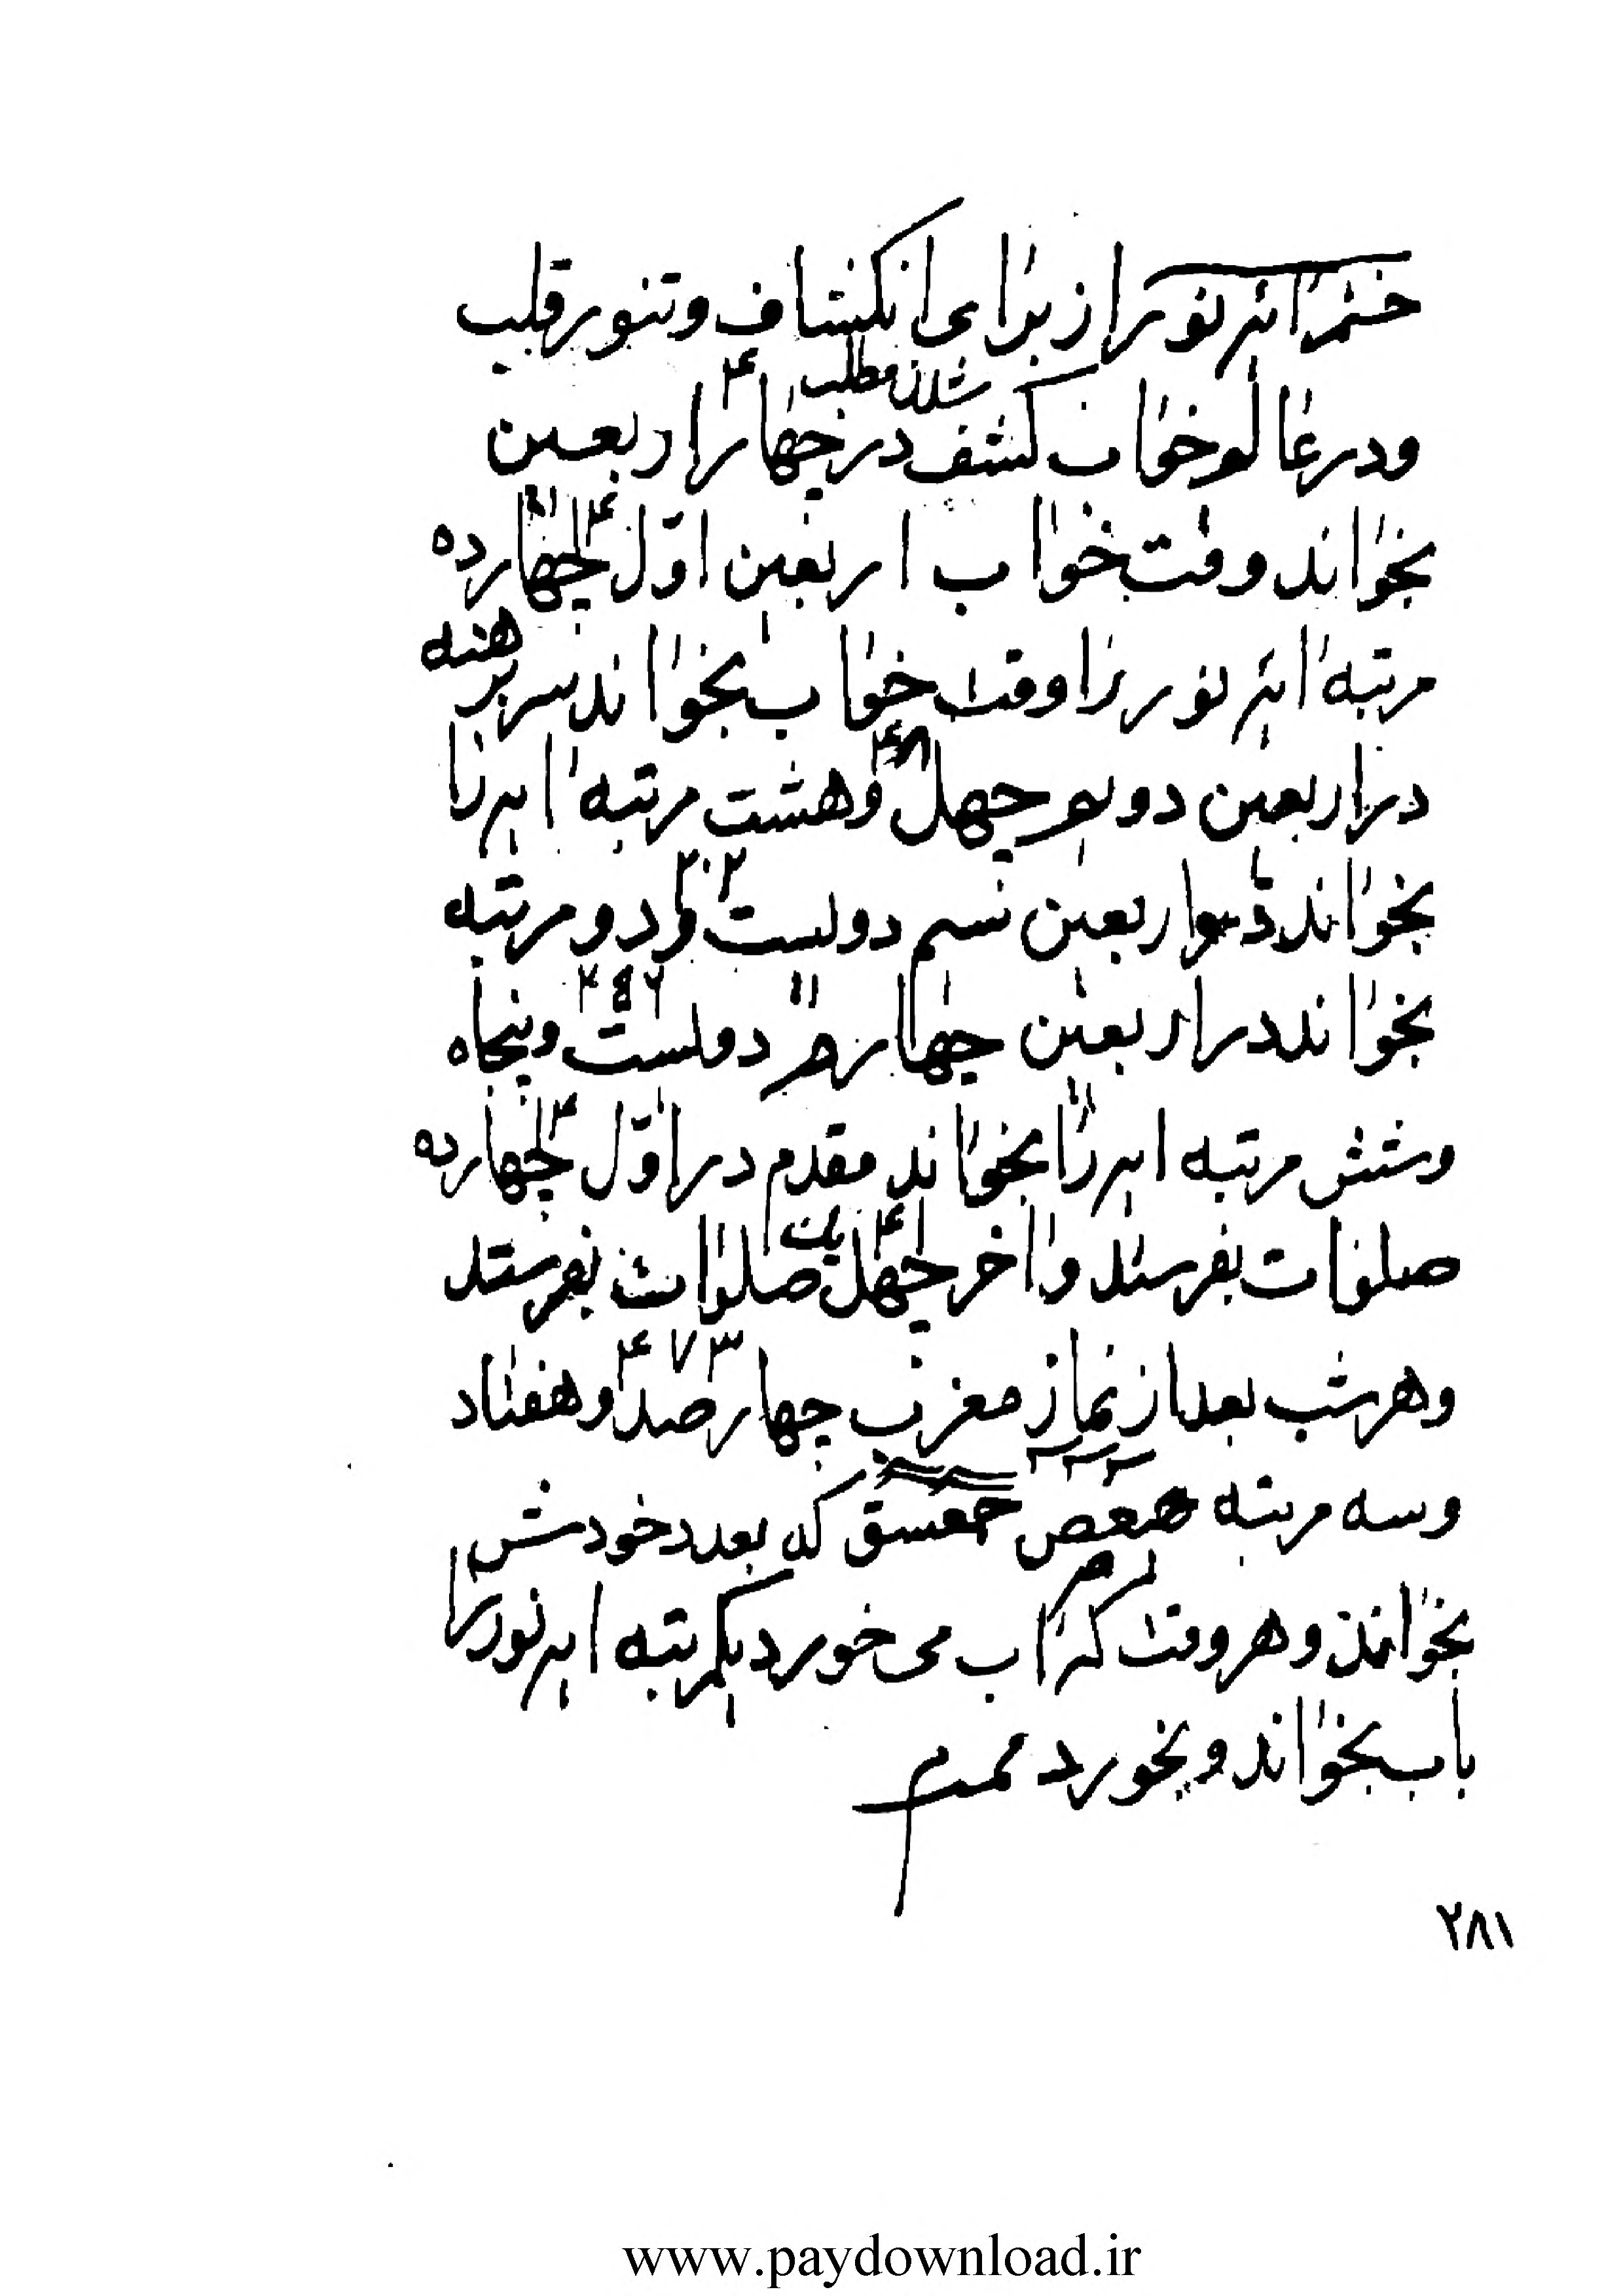 ختم ایه نور از برای انکشاف و تنور قلب
شدن مطلب ۴
و در عالم خواب کشف در چهار اربعین
بخواند وقت خواب اربعین اول چهارده ۱۴
مرتبه ایه نور را وقت خواب بخواند سر برهنه
در اربعین دویم چهل و هشت مرتبه ایه را ۴۸
بخواند در اربعین سیم دویست و دو مرتبه ۲۰۲
بخواند در اربعین چهارم دویست و پنجاه ۲۵۶
و شش مرتبه ایه را بخواند مقدم در اول چهارده ۱۴
صلوات بفرستد و اخر چهل یک صلوات بفرستد ۴۱
و هر شب بعد از نماز مغرب چهار صد و هفتاد ۴۷۳
و سه مرتبه حمعسق که بعدد خودش
بخواند و هر وقت که اب می خورد یکمرتبه ایه نور را
باب بخواند و بخورد
۲۸۱
www.paydownload.ir